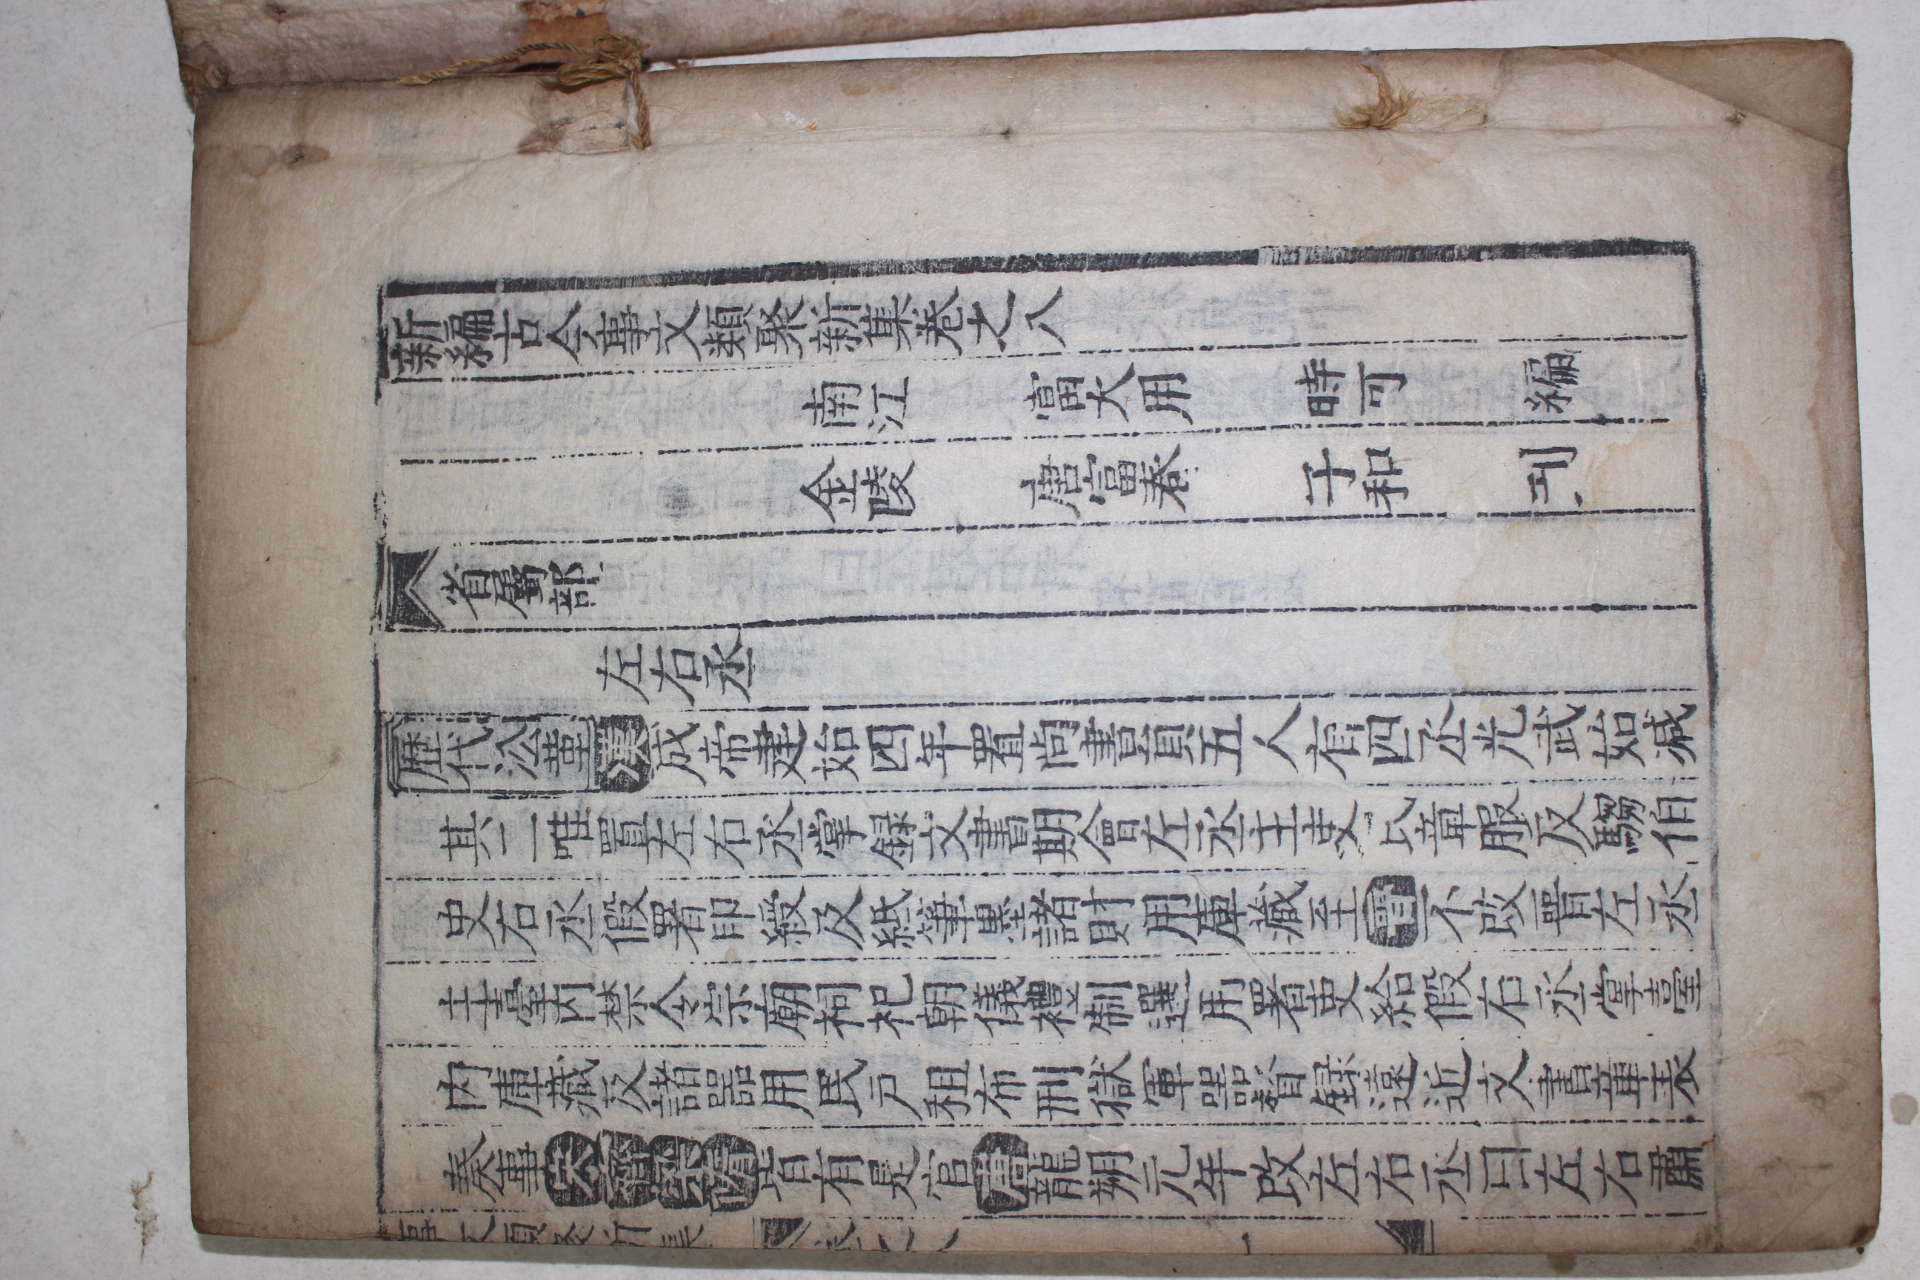 新編古今事文類聚新集卷之八
南江 富大用 時可 編
金陵 唐富春 子和 刊
省屬部
左右丞
歷代沿革漢成帝建始四年置尚書員五人有四丞光武始減
其二唯置左右丞掌録文書期會左丞主吏民章服及騶伯
史右丞假署印綬及紙筆墨諸財用庫藏至晉不改晋左丞
主臺内禁令宗廟祠祀朝儀禮制選用署吏給假右丞掌臺
内庫藏及諸器用民戶租布刑獄軍器督録遠近文書章表
奏事宋齊梁隋皆有是官唐龍朔元年改左右丞曰左右肅
事文類聚新集 卷之八 一